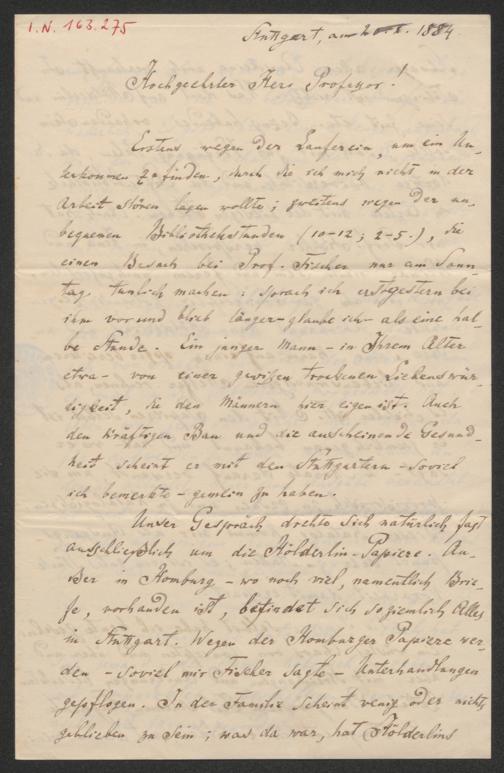 I.N. 163.275
Stuttgart, am 1884.
Hochgeehrter Herr Professor!
Erstens wegen der Lauferein, um ein Un-
terkommen zu finden, durch die ich mich nicht in der
Arbeit stören lassen wollte; zweitens wegen der un-
bequenen Bibliotheksstunden (10-12; 2-5.), die
einen Besuch bei Prof. Fischer nur am Sonn-
tag tunlich machen: sprach ich erst gestern bei
ihm vor und blieb länger - glaube ich - als eine hal-
be Stunde. Ein junger Mann - in Ihrem Alter
etwa - von einer gewißen trockenen Liebenswür-
digkeit, die den Männern hier eigen ist. Auch
den kräftigen Bau und die anscheinende Gesund-
heit scheint er mit den Stuttgartern - soviel
ich bemerkte - gemein zu haben.
Unser Gespräch drehte sich natürlich fast
ausschließlich um die Hölderlin-Papiere. Au-
ßer in Homburg - wo noch viel, namentlich Brie-
fe, vorhanden ist, befindet sich so ziemlich Alles
in Stuttgart. Wegen der Homburger Papiere wer-
den - soviel mir Fischer sagte - Unterhandlungen
gepflogen. In der Familie scheint wenig oder nichts
geblieben zu sein; was da war, hat Hölderlins